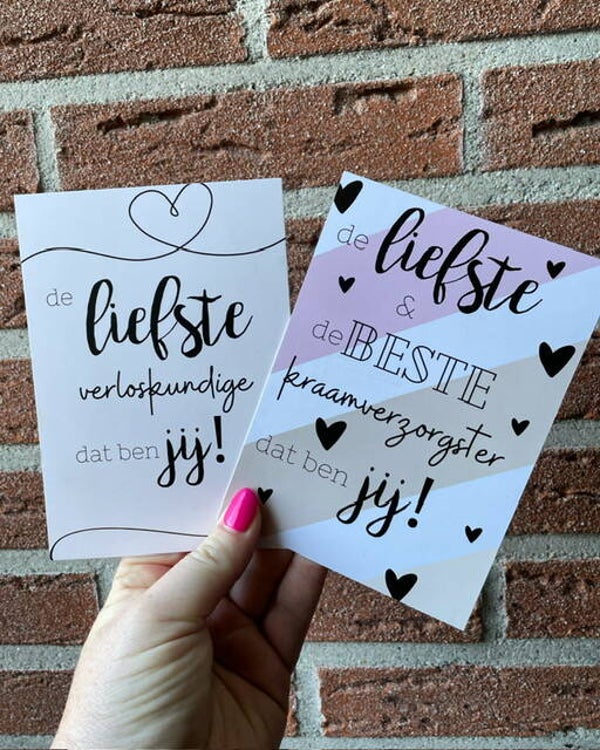 de liefste
verloskundige
dat ben jij!
de liefste
&
de BESTE
kraamverzorgster
dat ben jij!